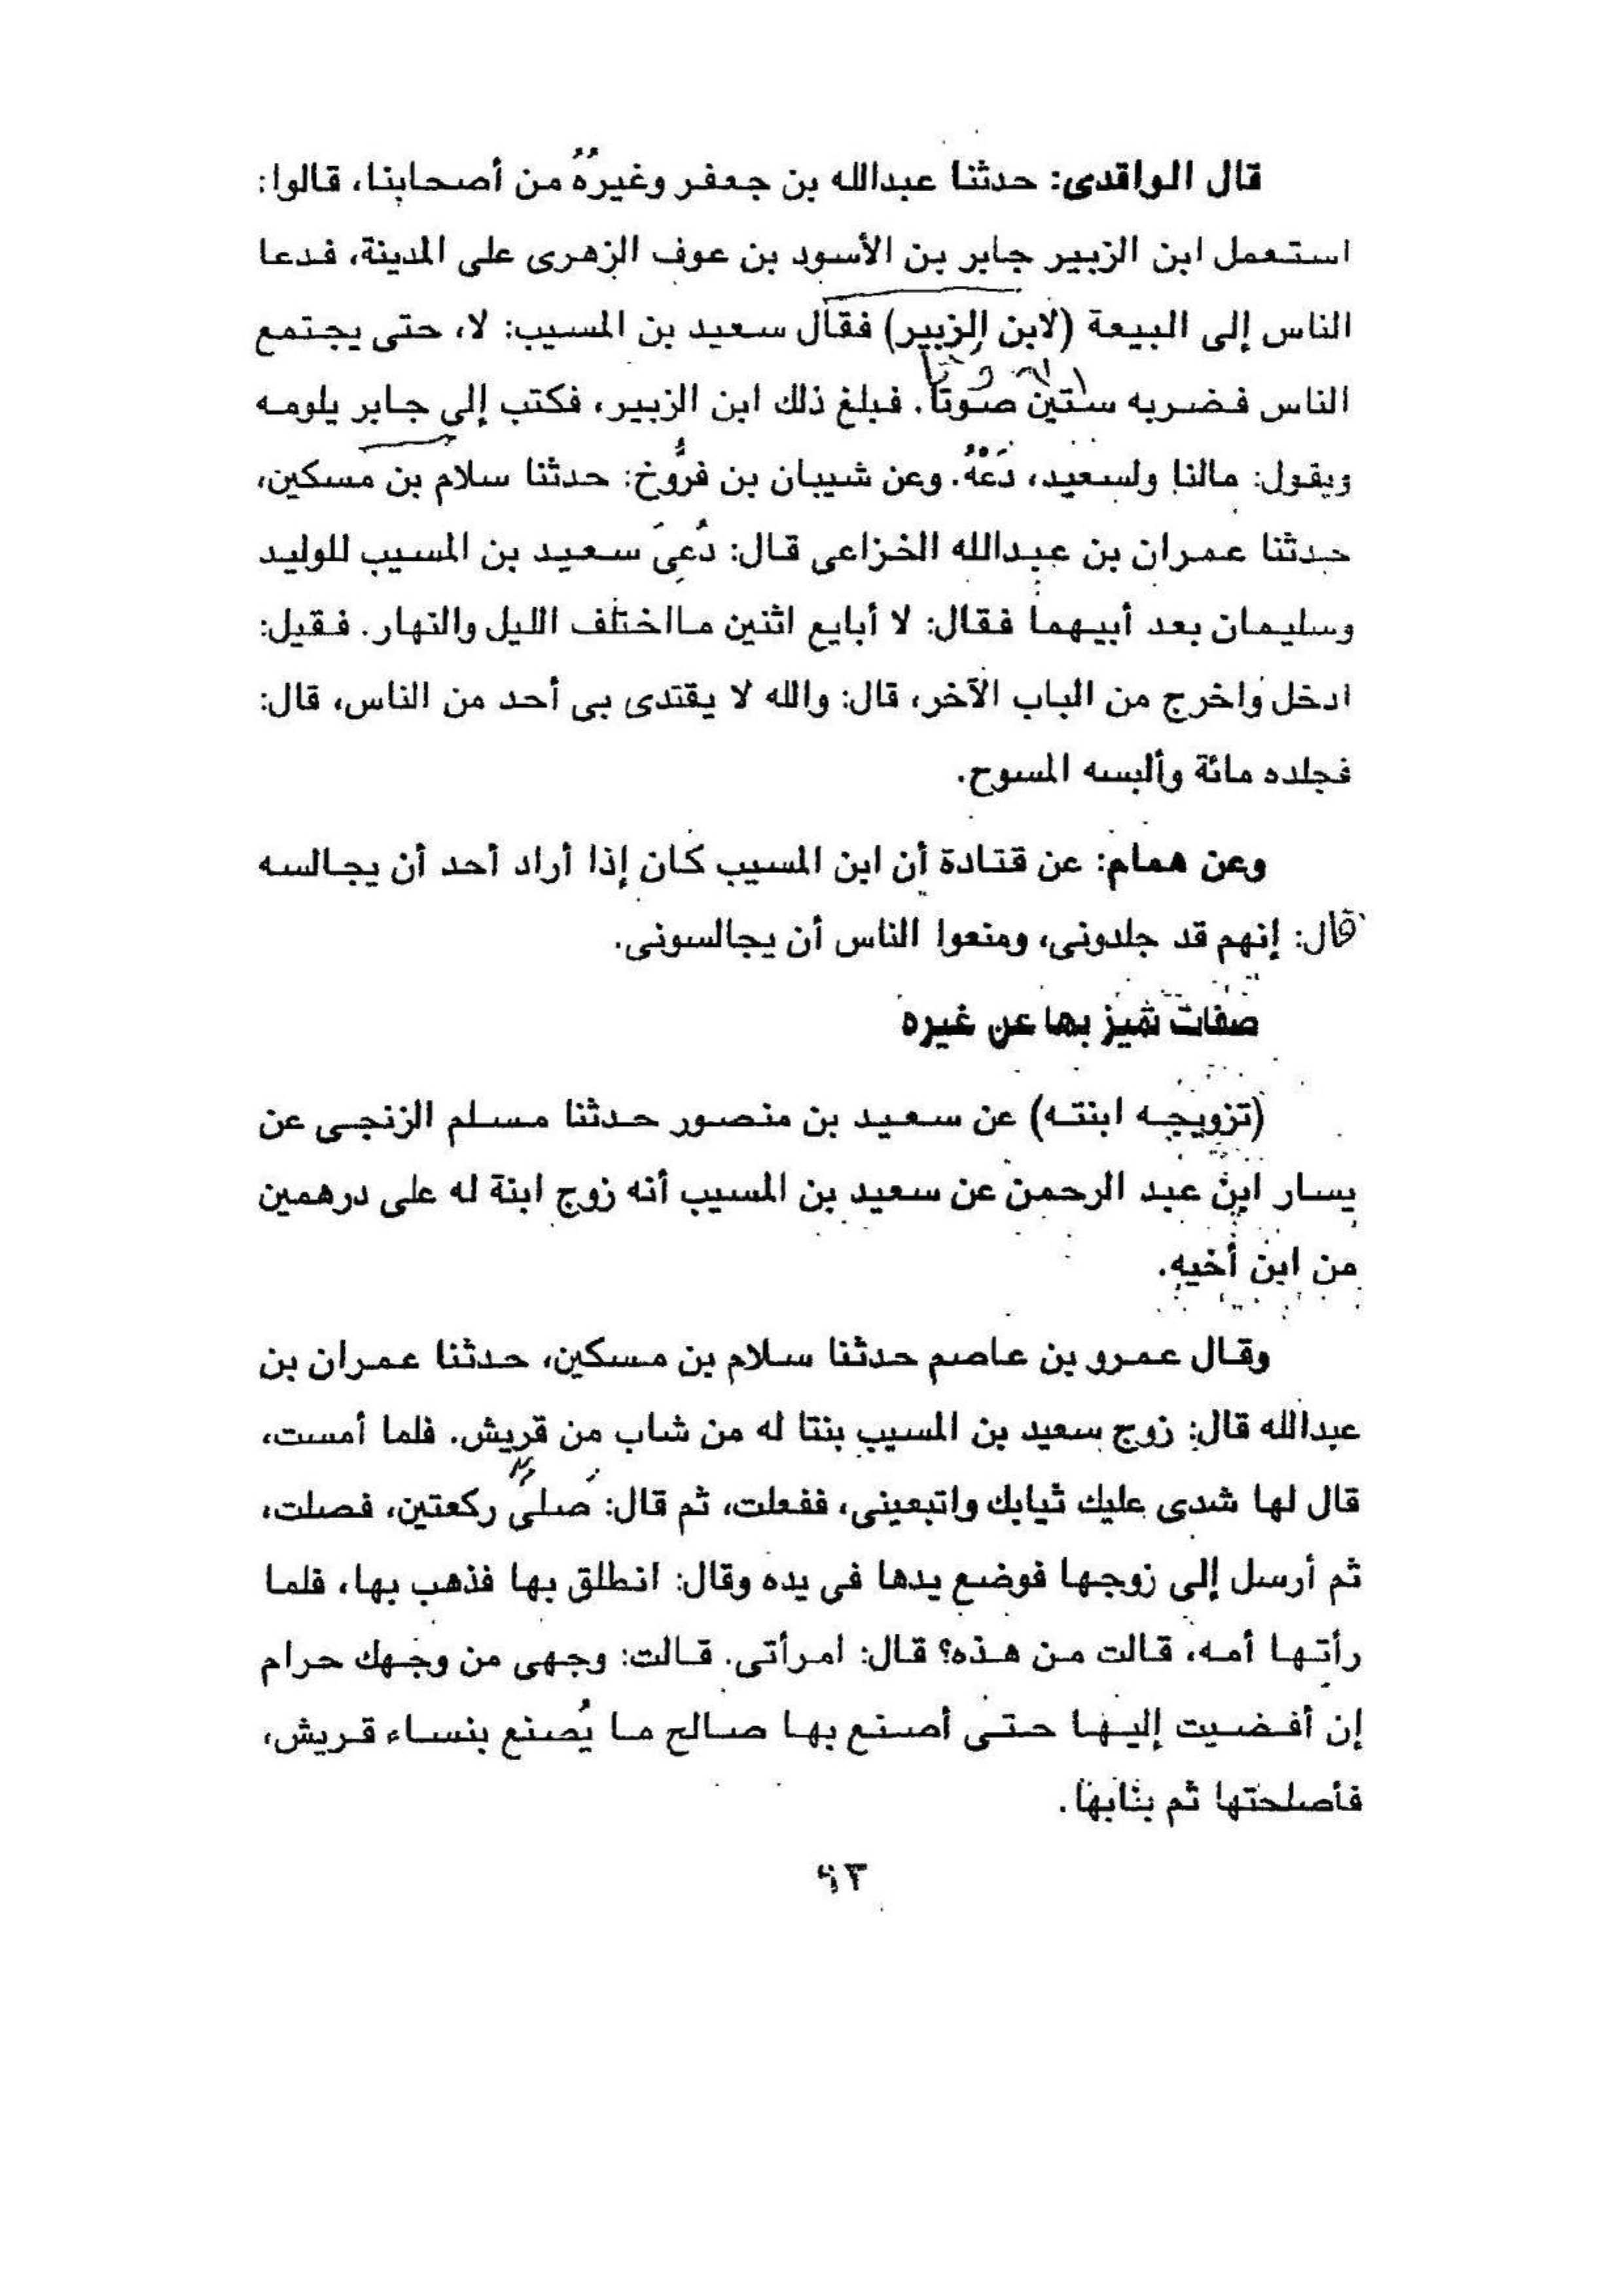 قال الواقدى: حدثنا عبدالله بن جعفر وغيرُهُ من أصحابنا، قالوا:
استعمل ابن الزبير جابر بن الأسود بن عوف الزهرى على المدينة، فدعا
الناس إلى البيعة (لابن الزبير) فقال سعيد بن المسيب: لا، حتى يجتمع
الناس فضربه ستين صوتاً. فبلغ ذلك ابن الزبير، فكتب إلى جابر يلومه
ويقول: مالنا ولسعيد، دَعْهُ. وعن شيبان بن فرُّوخ: حدثنا سلام بن مسكين،
حدثنا عمران بن عبدالله الخزاعى قال: دُعىَ سعيد بن المسيب للوليد
وسليمان بعد أبيهما فقال: لا أبايع اثنين مااختلف الليل والنهار. فقيل:
ادخل واخرج من الباب الآخر، قال: والله لا يقتدى بى أحد من الناس، قال:
فجلده مائة وألبسه المسوح.
وعن همام: عن قتادة أن ابن المسيب كان إذا أراد أحد أن يجالسه
قال: إنهم قد جلدونى، ومنعوا الناس أن يجالسونى.
صفات تميز بها عن غيره
(تزويجه ابنته) عن سعيد بن منصور حدثنا مسلم الزنجى عن
يسار ابن عبد الرحمن عن سعيد بن المسيب أنه زوج ابنة له على درهمين
من ابن أخيه.
وقال عمرو بن عاصم حدثنا سلام بن مسكين، حدثنا عمران بن
عبدالله قال: زوج سعيد بن المسيب بنتا له من شاب من قريش. فلما أمست،
قال لها شدى عليك ثيابك واتبعينى، ففعلت، ثم قال: صلى ركعتين، فصلت،
ثم أرسل إلى زوجها فوضع يدها فى يده وقال: انطلق بها فذهب بها، فلما
رأتها أمه، قالت من هذه؟ قال: امرأتى. قالت: وجهى من وجهك حرام
إن أفضيت إليها حتى أصنع بها صالح ما يُصنع بنساء قريش،
فأصلحتها ثم بنابها.
٩٣